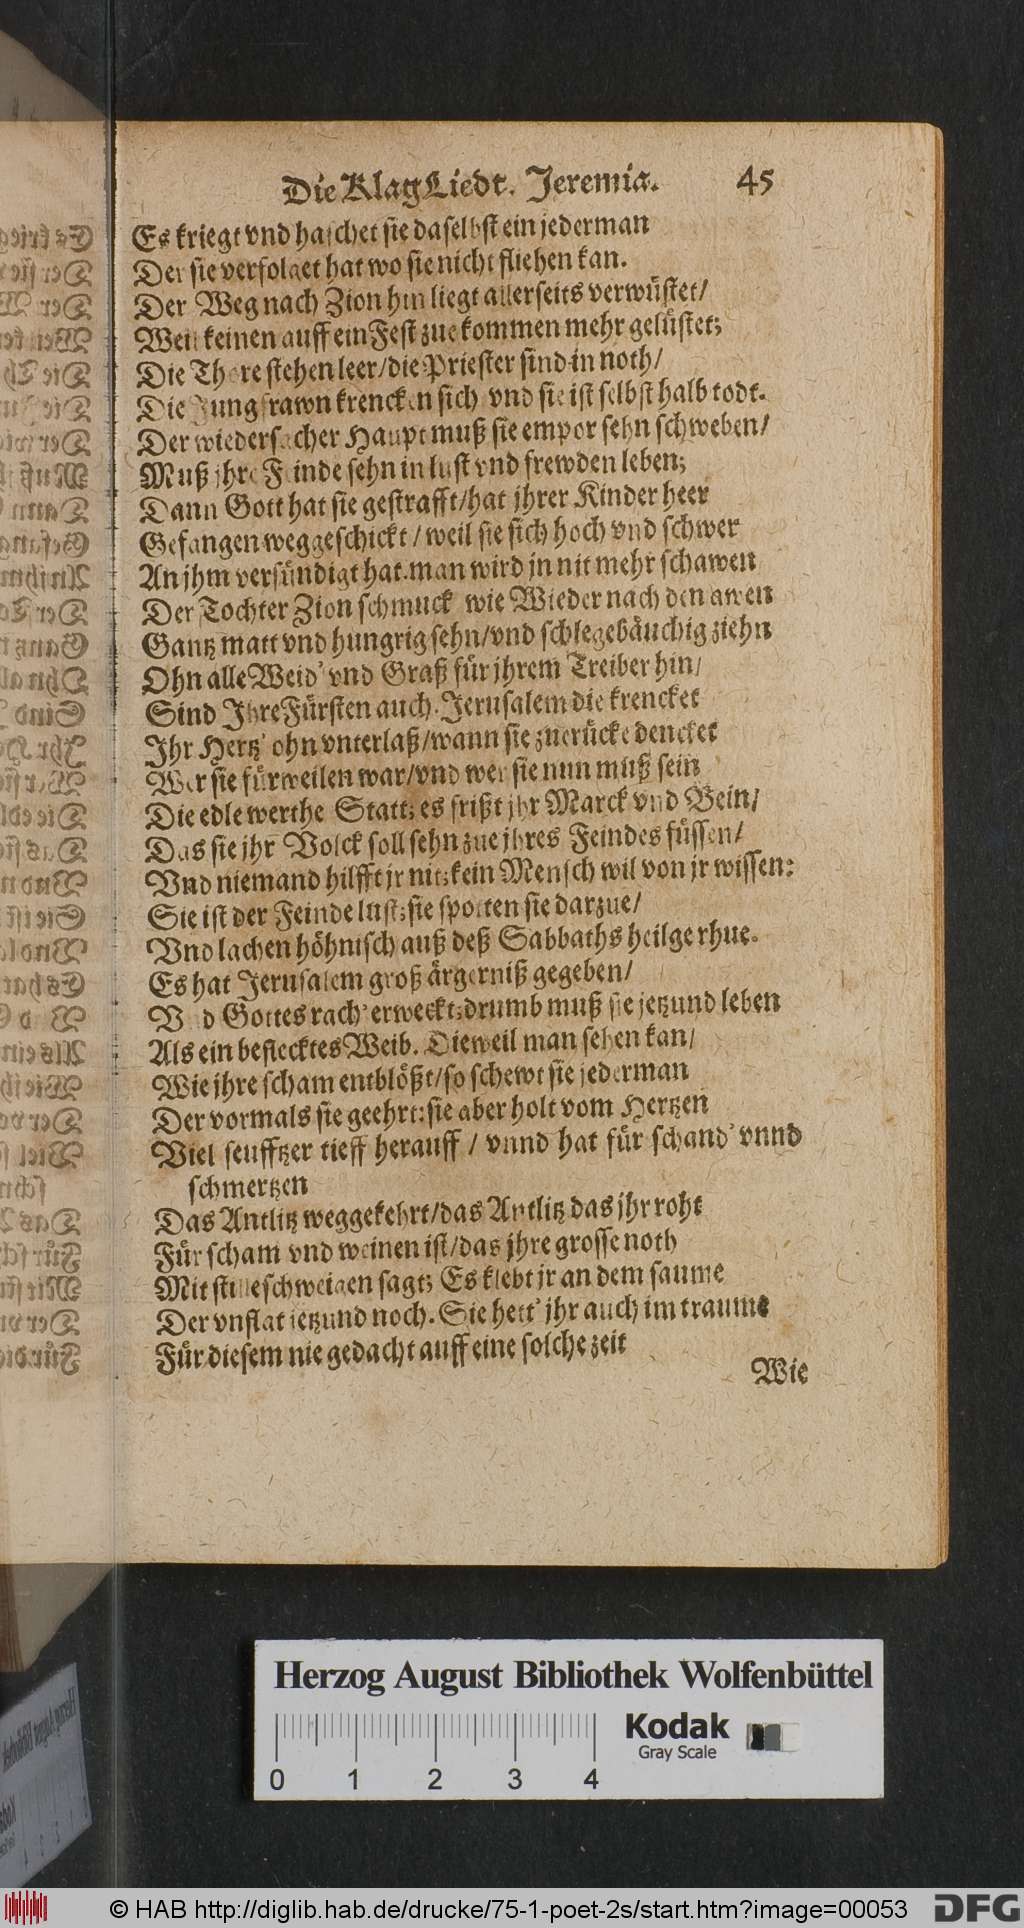 Die Klag Liedt. Jeremia. 45
Es kriegt vnd haschet sie daselbst ein jederman
Der sie verfolget hat wo sie nicht fliehen kan.
Der Weg nach Zion hin liegt allerseits verwüstet/
Weil keinen auff ein Fest zue kommen mehr gelüstet;
Die Thore stehen leer/die Priester sind in noth/
Die Jungfrawn krencken sich vnd sie ist selbst halb todt.
Der wiedersacher Haupt muß sie empor sehn schweben/
Muß jhre Feinde sehn in lust vnd frewden leben;
Dann Gott hat sie gestrafft/hat jhrer Kinder heer
Gefangen weggeschickt/ weil sie sich hoch vnd schwer
An jhm versündigt hat. man wird jn nit mehr schawen
Der Tochter Zion schmuck wie Wieder nach den awen
Gantz matt vnd hungrig sehn/vnd schlegebäuchig ziehn
Ohn alle Weid' vnd Graß für jhrem Treiber hin/
Sind Ihre Fürsten auch. Jerusalem die krencket
Ihr Hertz' ohn vnterlaß/wann sie zuerücke dencket
Wer sie fürweilen war/vnd wer sie nun muß sein
Die edle werthe Statt; es frißt jhr Marck vnd Bein/
Das sie jhr Volck soll sehn zue jhres Feindes füssen/
Vnd niemand hilfft jr nit; kein Mensch wil von jr wissen:
Sie ist der Feinde lust; sie spotten sie darzue/
Vnd lachen höhnisch auß deß Sabbaths heilge rhue.
Es hat Jerusalem groß ärgerniß gegeben/
Vnd Gottes rach' erweckt; drumb muß sie jetzund leben
Als ein beflecktes Weib. Dieweil man sehen kan/
Wie jhre scham entblößt/so schewt sie jederman
Der vormals sie geehrt: sie aber holt vom Hertzen
Viel seufftzer tieff herauff / vnnd hat für schand' vnnd
schmertzen
Das Antlitz weggekehrt/das Antlitz das jhr roht
Für scham vnd weinen ist/das jhre grosse noth
Mit stilleschweigen sagt; Es klebt jr an dem saume
Der vnflat jetzund noch. Sie hett' jhr auch im traume
Für diesem nie gedacht auff eine solche zeit
Wie
Herzog August Bibliothek Wolfenbüttel
Kodak
Gray Scale
0 1 2 3 4
© HAB http://diglib.hab.de/drucke/75-1-poet-2s/start.htm?image=00053
DFG